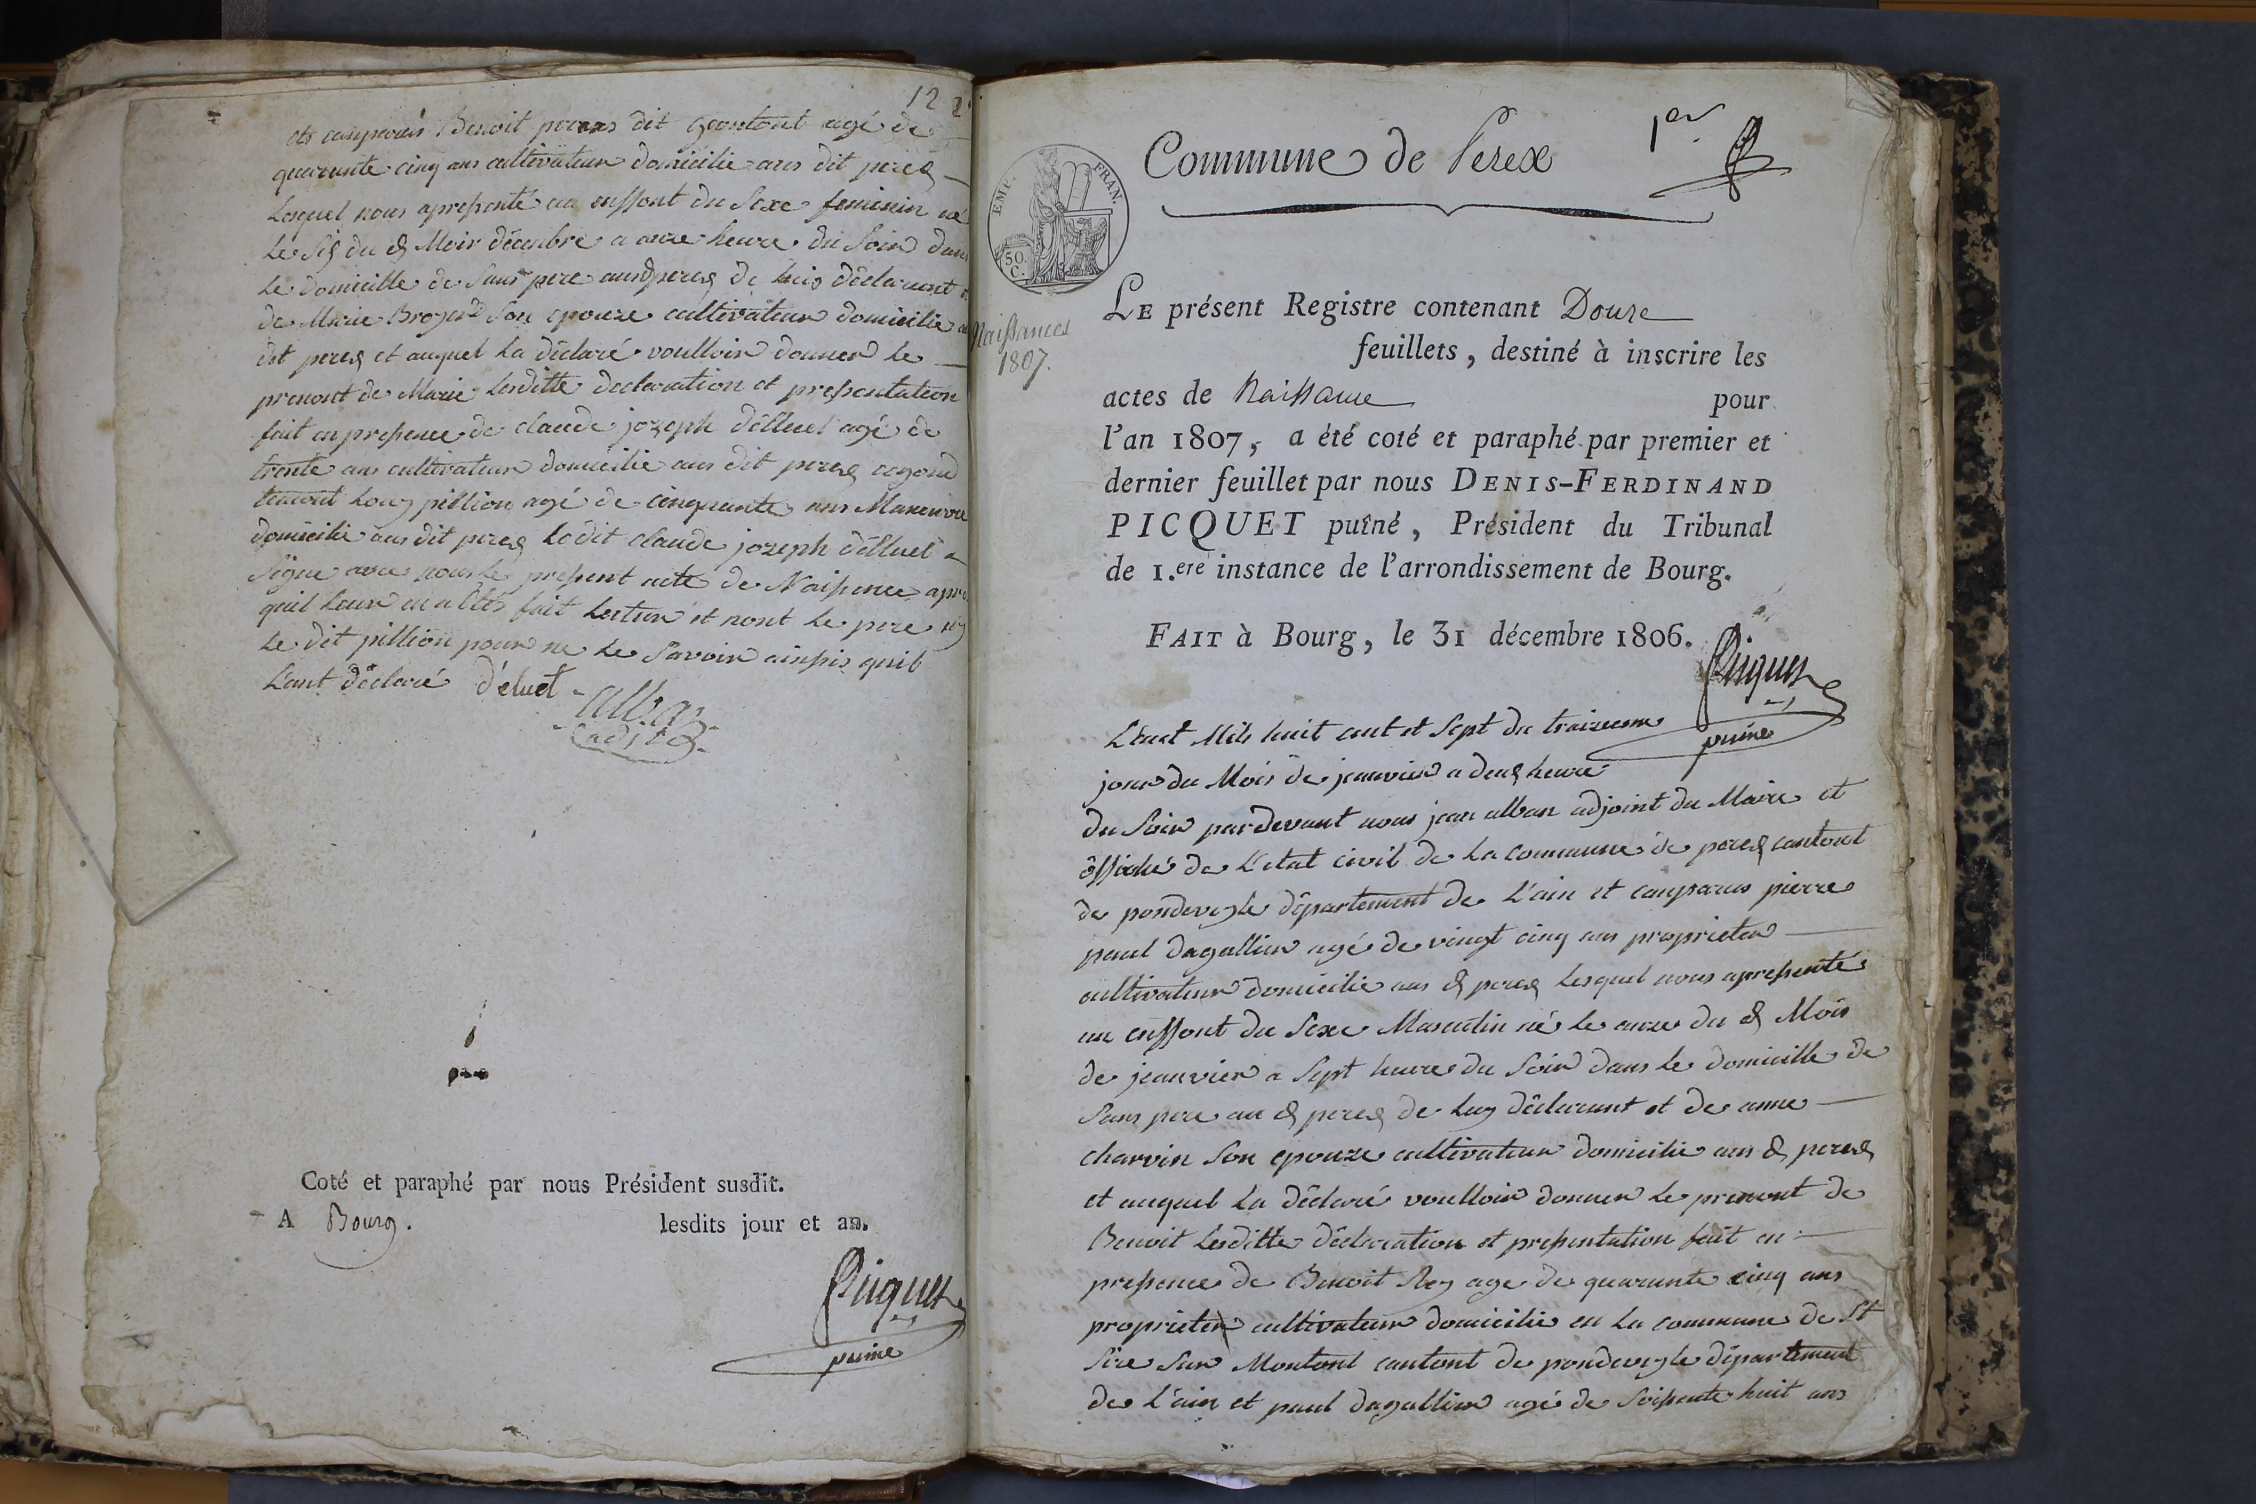 12
ete comparus Benoit perras dit gontont agé de
quarante cinq ans cultivateur domicilie aus dit perex
Lesquel nous apressenté un enffont du Sexe feminin né
Le Six du d Mois décenbre a onze heure du Soir dans
Le domicille de Sans pere ausd perex de Luis déclarant et
de Marie Broyer Son epouze cultivateur domicilie au
dit perex et auquel La déclaré voulloir donner Le
prenont de Marie Lesditte declaration et pressentation
fait en pressence de claude jozeph délluet agé de
trente ans cultivateur domicilie aus dit perex
Louis pillion agé de cinquante ans Maneuvre
domicilie aus dit perex Ledit claude jozeph délluet a
Signe avec nous Le pressent acte de Naissence apres
quil Leur en a étés fait Lecture et nont Le pere ny
Le dit pillion pour ne Le Savoir ainssis quil
L'ont déclaré déluet
alban
adjt
Coté et paraphé par nous Président susdit.
A Bourg. lesdits jour et an.
Picquet
puiné
1er
Commune de Perex
EMP. FRAN.
50. C.
Naissances
1807.
LE présent Registre contenant Douze
feuillets, destiné à inscrire les
actes de Naissance pour
l'an 1807, a été coté et paraphé par premier et
dernier feuillet par nous DENIS-FERDINAND
PICQUET puîné, Président du Tribunal
de 1.ere instance de l'arrondissement de Bourg.
FAIT à Bourg, le 31 décembre 1806.
Picquet
puiné
L'enct Mils huit cent et Sept du traizieme
jour du Mois de jeanvier a deux heure
du Soir pardevant nous jean alban adjoint du Maire et
ôffithié de L'etat civil de La commune de perex cantont
de pondeveyle département de L'ain et comparus pierre
paul dagallier agé de vingt cinq ans proprieter
cultivateur domicilie aus d perex Lesquel nous apressentés
un enffont du Sexe Masculin né Le onze du d Mois
de jeanvier a Sept heure du Soir dans Le domicille de
Sans pere au d perex de Luy déclarant et de anne
charvin Son epouze cultivateur domicilie aus d perex
et auquel La déclaré voulloir donner Le prenont de
Benoit Lesditte déclaration et pressentation fait en
pressence de Benoit Rey age de quarante cinq ans
proprieter cultivateur domicilie en La commune de St
Sire Sur Montont cantont de pondeveyle département
de L'ain et paul dagallier agé de Soissente huit ans